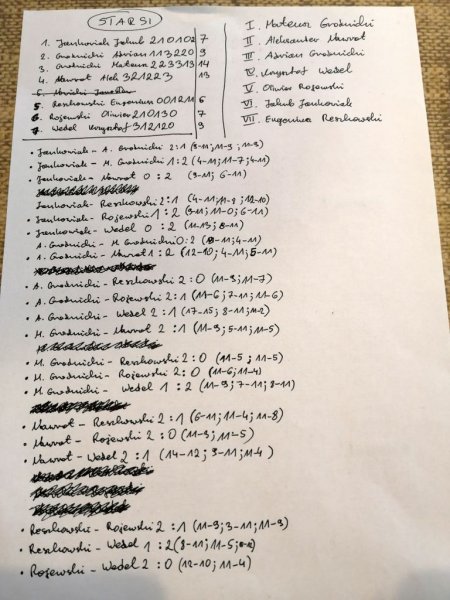 STARSI
1. Jankowiak Jakub 210102 7
2. Grodnicki Adrian 113220 9
3. Grodnicki Mateusz 223313 14
4. Nawrot Alek 321223 13
5. Reszkowski Eugeniusz 001211 5
6. Rojewski Oliwier 210130 7
7. Wedel Krzysztof 312120 9
I. Mateusz Grodnicki
II. Aleksander Nawrot
III. Adrian Grodnicki
IV. Krzysztof Wedel
V. Oliwier Rojewski
VI. Jakub Jankowiak
VII. Eugeniusz Reszkowski
• Jankowiak - A. Grodnicki 2:1 (9-11; 11-9; 11-9)
• Jankowiak - M. Grodnicki 1:2 (4-11; 11-7; 4-11)
• Jankowiak - Nawrot 0:2 (9-11; 6-11)
Jankowiak - Reszkowski 2:1 (4-11; 11-9; 12-10)
• Jankowiak - Rojewski 1:2 (9-11; 11-0; 6-11)
• Jankowiak - Wedel 0:2 (11-13; 8-11)
A. Grodnicki - M. Grodnicki 0:2 (8-11; 4-11)
• A. Grodnicki - Nawrot 1:2 (12-10; 4-11; 5-11)
• A. Grodnicki - Reszkowski 2:0 (11-9; 11-7)
• A. Grodnicki - Rojewski 2:1 (11-6; 7-11; 11-6)
• A. Grodnicki - Wedel 2:1 (17-15; 8-11; 11-2)
• M. Grodnicki - Nawrot 2:1 (11-9; 5-11; 11-5)
• M. Grodnicki - Reszkowski 2:0 (11-5; 11-5)
• M. Grodnicki - Rojewski 2:0 (11-6; 11-4)
• M Grodnicki - Wedel 1:2 (11-9; 7-11; 8-11)
• Nawrot - Reszkowski 2:1 (6-11; 11-4; 11-8)
• Nawrot - Rojewski 2:0 (11-3; 11-5)
• Nawrot - Wedel 2:1 (14-12; 9-11; 11-4)
• Reszkowski - Rojewski 2:1 (11-9; 3-11; 11-9)
• Reszkowski - Wedel 1:2 (8-11; 11-5;
• Rojewski - Wedel 2:0 (12-10; 11-4)